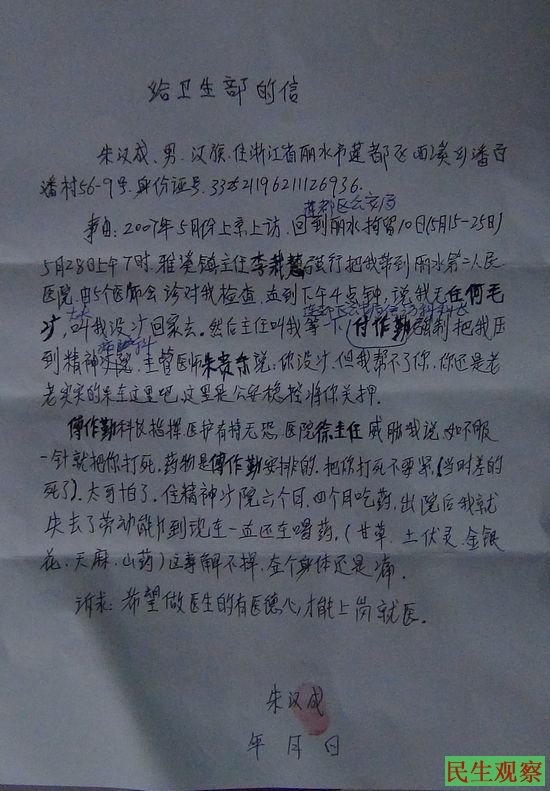 给卫生部的信
朱汉成、男、汉族、住浙江省丽水市莲都区西溪乡潘百
潘村56-9号. 身份证号. 33252119621126936.
莲都区公安局
事由: 2007年5月份上京上访. 回到丽水拘留10日(5月15-25日)
5月28日上午7时. 雅溪镇主任李 强行把我带到丽水第二人民
医院. 由5个医师会诊对我检查. 直到下午4点钟, 说我无任何毛
病, 叫我没病回家去. 然后主任叫我等一下(付作勤强制把我压
到精神病院, 主督医师朱贵东说: 你没病. 但我帮不了你, 你还是老
老实实的呆在这里吧, 这里是公安稳控将你关押.
傅作勤科长指挥. 医护有持无恐. 医院徐主任威胁我说, 如不服
一针就把你打死, 药物是傅作勤安排的. 把你打死不要紧(当时差的
死了). 太可怕了. 住精神病院六个月. 四个月吃药, 出院后我就
失去了劳动能力到现在一直还在喝药, (甘草. 土伏灵. 金银
花. 天麻. 山药) 这毒解不掉. 全个身体还是痛.
诉求: 希望做医生的有医德心, 才能上岗就医.
朱汉成
年 月 日
民生观察